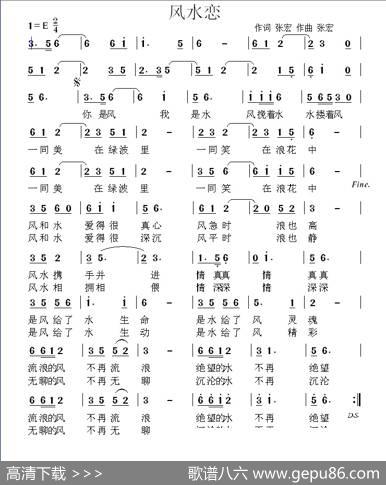 风水恋
1=E 2/4
作词 张宏 作曲 张宏
3. 5 6 | 6 6 i | i. 5 | 6 - | 6 1 2 | 2 3 | 0
5 1 2 | 2 | 3 5 | 2 3 5 | 6 1 2 | 2 3 1 5 |
5 6. | 3. 5 6 | 6 i. | 5 6. | i i i 6 | 5 6 5 3 0 |
你 是风 我 是 水 风挽着水 水搂着风
6 1 2 | 2 3 5 1 | 2 - | 0 2 3 5 | 2 3 1 5 | 6 - |
一同美 在绿波 里 一同笑 在浪花 中
6 1 2 | 2 3 5 1 | 2 - | 3 5 6 | 6 i i 5 | 6 - |
一同美 在绿波 里 一同笑 在浪花 中
Fine.
3 5 6 0 | 6 1 6 1 | 2 5 | 6 1 2 | 2 0 5 2 | 3 |
风和水 爱得很 真心 风急时 浪也 高
风和水 爱得很 深沉 风平时 浪也 静
3 5 2 | 3 5. | 2 3 | 1. 5 6 | 1 6. | 5 6 |
风水携 手并 进 情 真真 情 真真
风水相 拥相 偎 情 深深 情 深深
3 5 5 6 | i. i | 6 - | 3 5 5 6 | i. 5 | 6 - |
是风给了 水 生 命 是水给了 风 灵 魂
是风给了 水 生 动 是水给了 风 精 彩
6 6 1 2 | 3 5 5 2 | 2 | 6 6 1 2 | 3 1. | 5 6 |
流浪的风 不再流 浪 绝望的水 不再 绝望
无聊的风 不再无 聊 沉沦的水 不再 沉沦
6 6 1 2 | 3 5 5 2 | 2 - | 6 6 i 2 | 3 i. | 5 6 :‖
流浪的风 不再流 浪 绝望的水 不再 绝望
无聊的风 不再无 聊
D.S.
高清下载 >>>
歌谱八六 www.gepu86.com